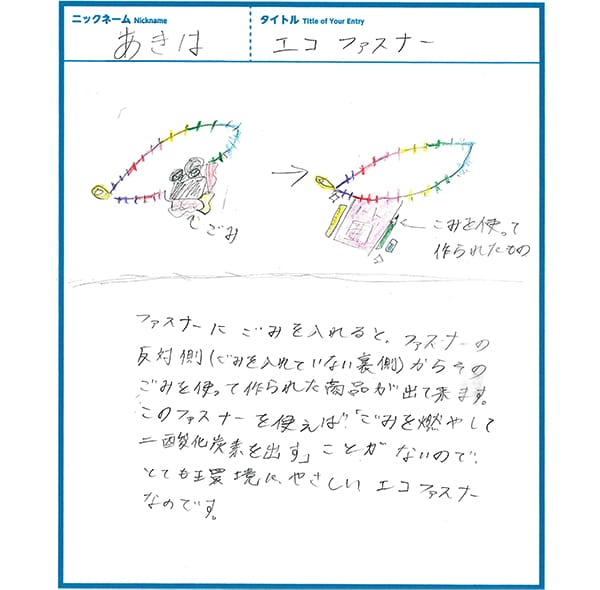 ニックネーム Nickname
タイトル Title of Your Entry
あきは
エコ ファスナー
ごみ
ノート
ごみを使って
作られたもの
ファスナーに ごみを入れると、ファスナーの
反対側(ごみを入れていない裏側)からその
ごみを使って作られた商品が出て来ます。
このファスナーを使えば「ごみを燃やして
二酸化炭素を出す」ことがないので、
とても環境に、やさしい エコファスナー
なのです。